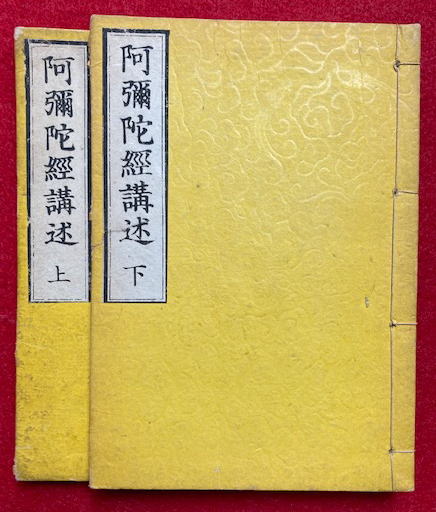 阿彌陀經講述 上
阿彌陀經講述 下